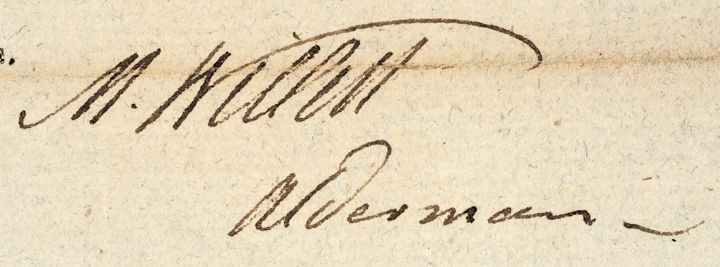 M. Willett
Alderman